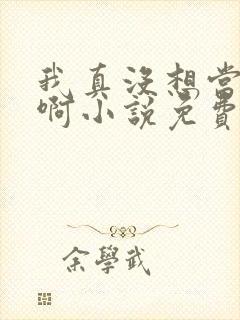 我真沒想當
啊小說免費
余學武